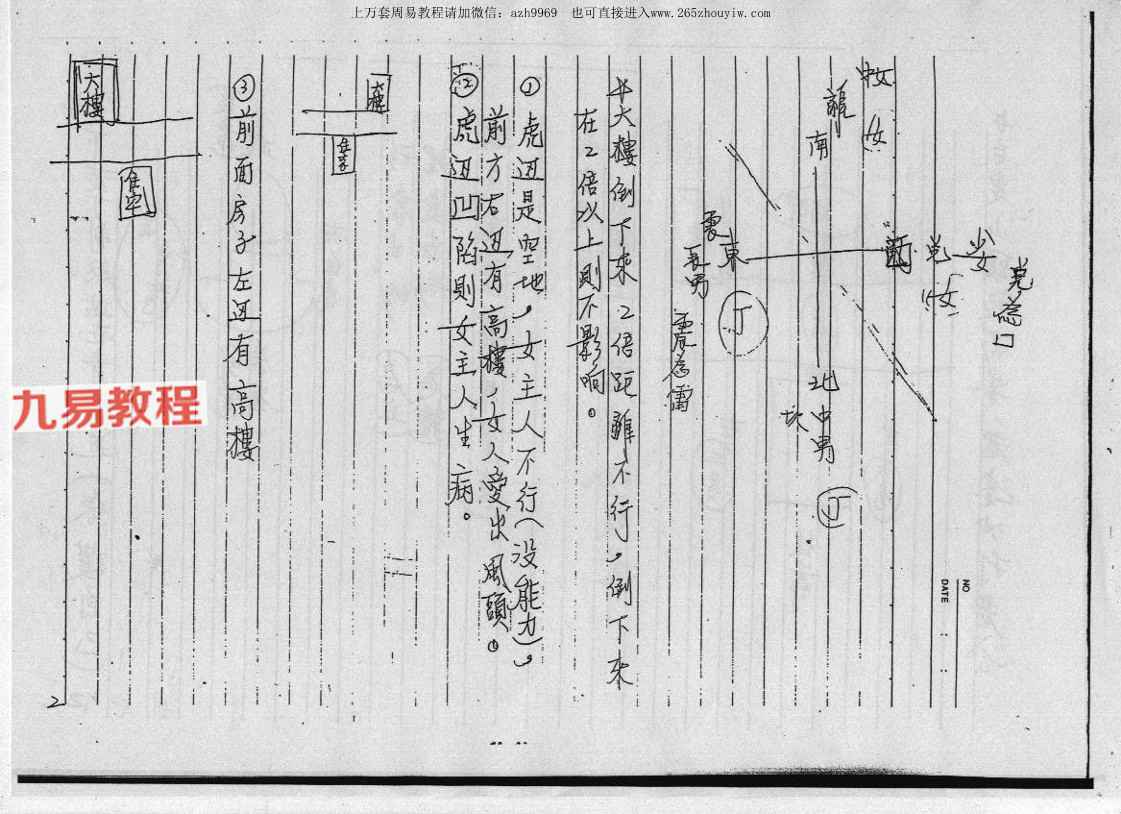 上万套周易教程请加微信：azh9969 也可直接进入www.265zhouyiw.com
NO
DATE : :
兌為口
少女
兌
女
西
中女
女
離
南
北
中男
坎
丁
震
東
長男
丁
震為雷
大樓倒下來2倍距離不行，倒下來
在2倍以上則不影响。
① 虎边是空地，女主人不行(没能力)，
前方右边有高樓，女人愛出風頭。
② 虎边凹陷則女主人生病。
大樓
住家
③ 前面房子左边有高樓
大樓
住宅
九易教程
2